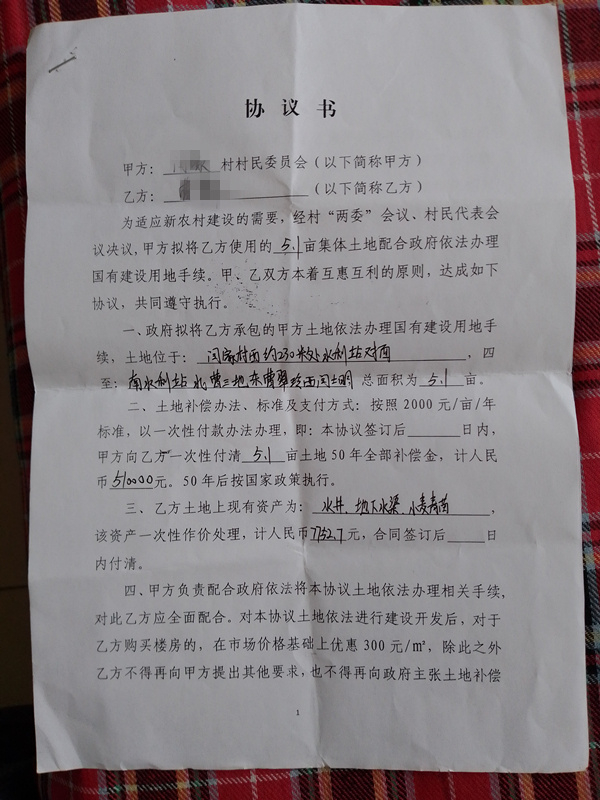 协议书
甲方: 村村民委员会(以下简称甲方)
乙方: (以下简称乙方)
为适应新农村建设的需要,经村“两委”会议、村民代表会
议决议,甲方拟将乙方使用的 5.1 亩集体土地配合政府依法办理
国有建设用地手续。甲、乙双方本着互惠互利的原则,达成如下
协议,共同遵守执行。
一、政府拟将乙方承包的甲方土地依法办理国有建设用地手
续,土地位于: 闫家村西约230米处水利站对面 ,四
至: 南水利站 北曹三地 东曹翠玲西闫士明 总面积为 5.1 亩。
二、土地补偿办法、标准及支付方式:按照 2000 元/亩/年
标准,以一次性付款办法办理,即:本协议签订后 日内,
甲方向乙方一次性付清 5.1 亩土地 50 年全部补偿金,计人民
币 510000 元。50 年后按国家政策执行。
三、乙方土地上现有资产为: 水井、地下水渠、小麦青苗 ,
该资产一次性作价处理,计人民币 77527 元,合同签订后 日
内付清。
四、甲方负责配合政府依法将本协议土地依法办理相关手续,
对此乙方应全面配合。对本协议土地依法进行建设开发后,对于
乙方购买楼房的,在市场价格基础上优惠 300 元/㎡,除此之外
乙方不得再向甲方提出其他要求,也不得再向政府主张土地补偿
1